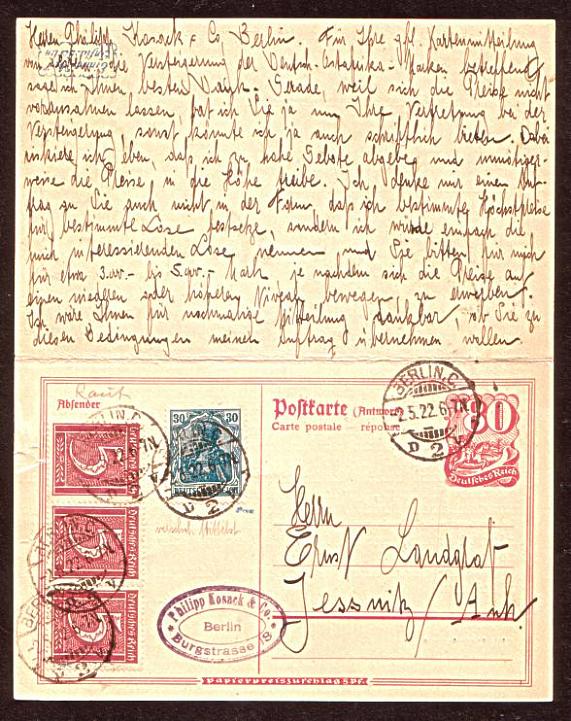 Herren Philipp Kosack & Co, Berlin. Für Ihre gfl. Kartenmitteilung
von der Versteigerung der Deutsch-Ostafrika-Marken betreffend
sage ich Ihnen besten Dank. Gerade, weil sich die Preise nicht
voraussehen lassen, bat ich Sie ja um Ihre Vertretung bei der
Versteigerung, sonst könnte ich ja auch schriftlich bieten. Dabei
riskiere ich eben, daß ich zu hohe Gebote abgebe und unnötiger-
weise die Preise in die Höhe treibe. Ich denke mir einen Auf-
trag an Sie auch nicht in der Form, daß ich bestimmte Höchstpreise
für bestimmte Lose festsetze, sondern ich würde einfach die
mich interessierenden Lose nennen und Sie bitten, für mich
für etwa 3.000.- bis 5.000.- Mark je nachdem sich die Preise auf
einem niederen oder höheren Niveau bewegen, zu erwerben.
Ich wäre Ihnen für nochmalige Mitteilung dankbar, ob Sie zu
diesen Bedingungen meinen Auftrag übernehmen wollen.
Absender
Postkarte (Antwort)
Carte postale — réponse
BERLIN.C.
2.5.22.6-7N.
D 2 V
80
Deutsches Reich
30 30
Deutsches Reich
Deutsches Reich
Deutsches Reich
Herrn
Ernst Landgraf
Jessnitz/Anh.
Philipp Kosack & Co.
Berlin
Burgstrasse 8
Papierpreiszuschlag 5 Pf.